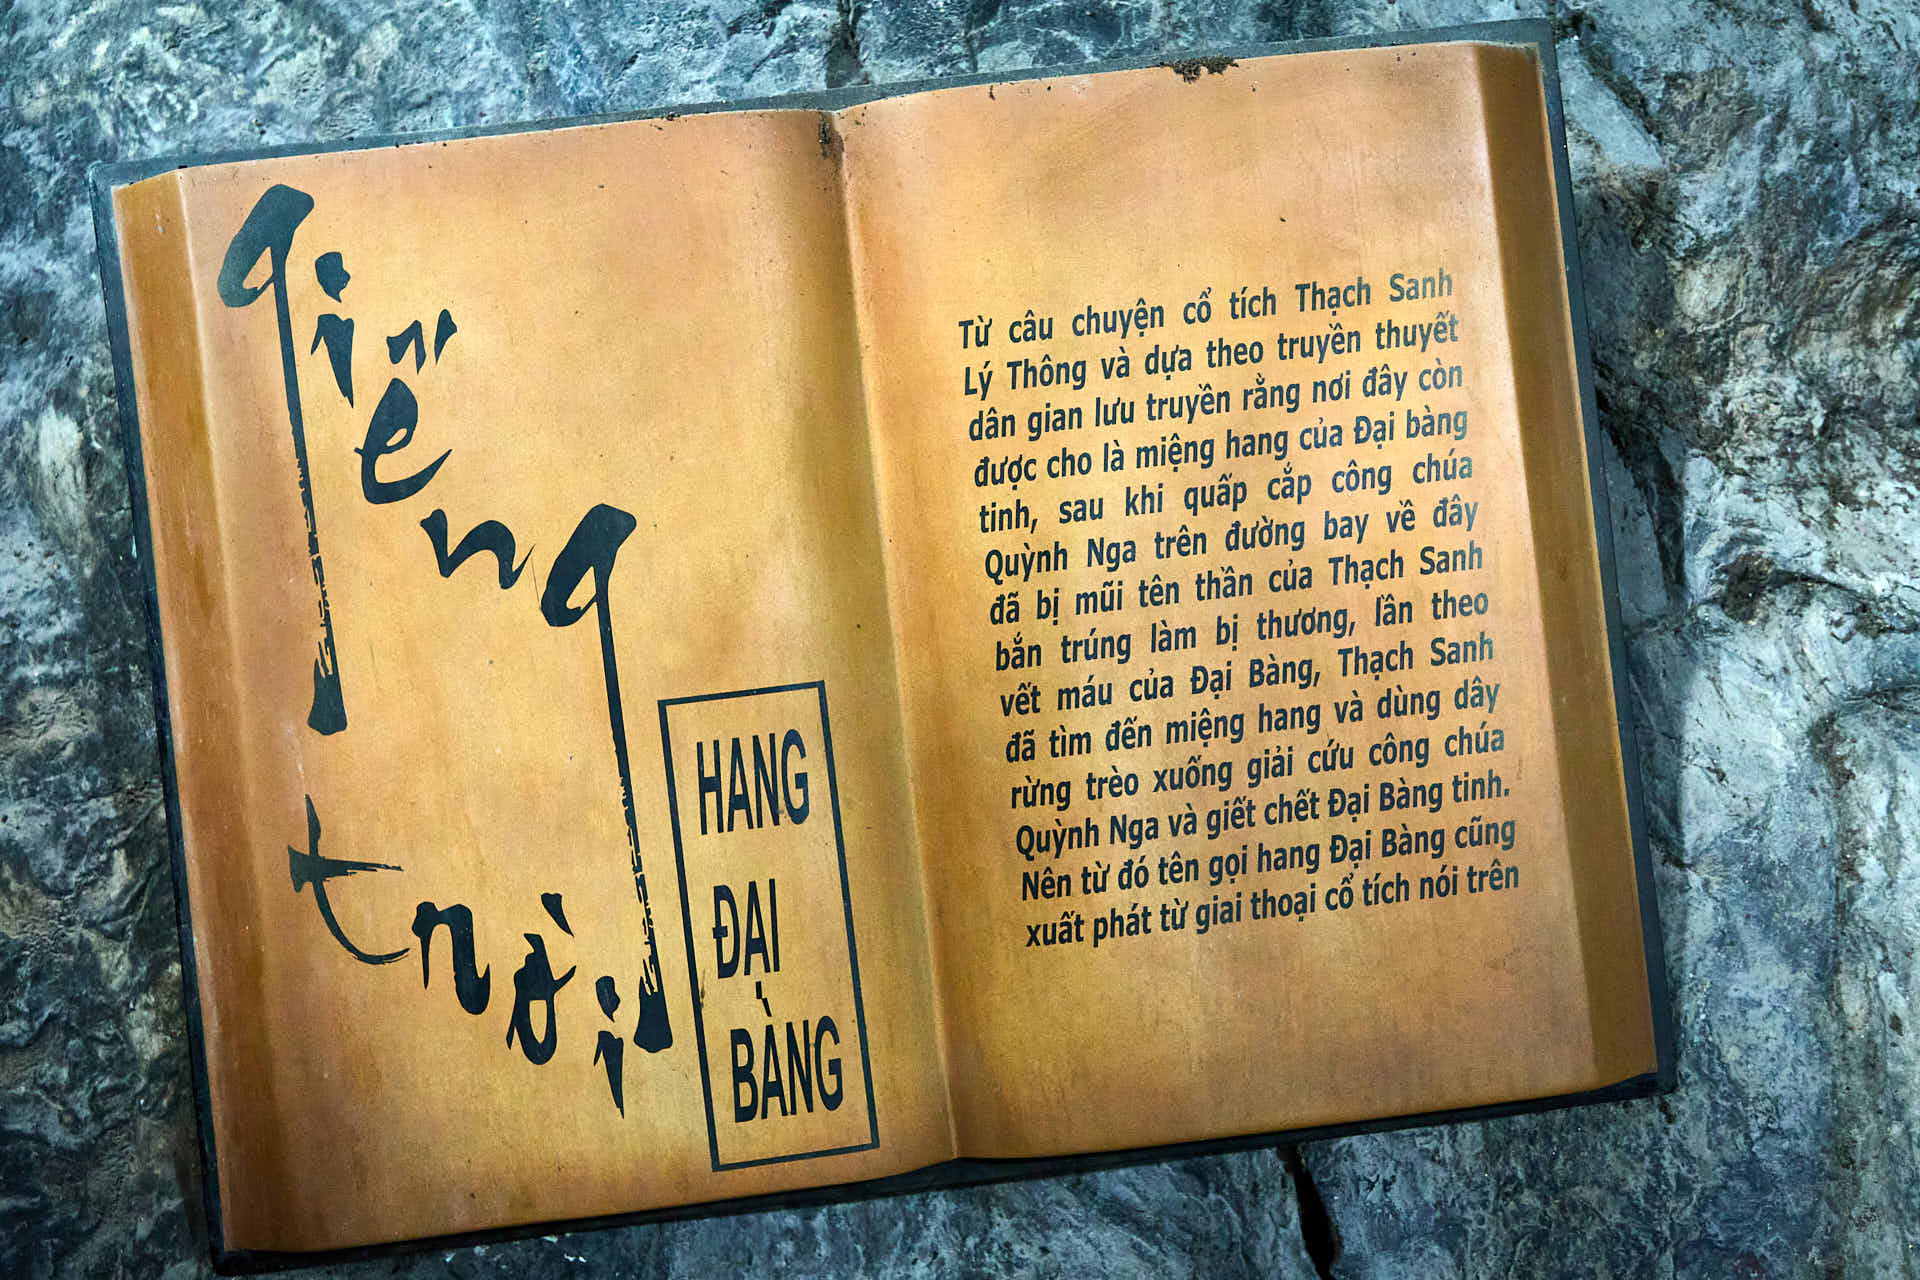 giếng
trời
HANG
ĐẠI
BÀNG
Từ câu chuyện cổ tích Thạch Sanh
Lý Thông và dựa theo truyền thuyết
dân gian lưu truyền rằng nơi đây còn
được cho là miệng hang của Đại bàng
tinh, sau khi quấp cắp công chúa
Quỳnh Nga trên đường bay về đây
đã bị mũi tên thần của Thạch Sanh
bắn trúng làm bị thương, lần theo
vết máu của Đại Bàng, Thạch Sanh
đã tìm đến miệng hang và dùng dây
rừng trèo xuống giải cứu công chúa
Quỳnh Nga và giết chết Đại Bàng tinh.
Nên từ đó tên gọi hang Đại Bàng cũng
xuất phát từ giai thoại cổ tích nói trên